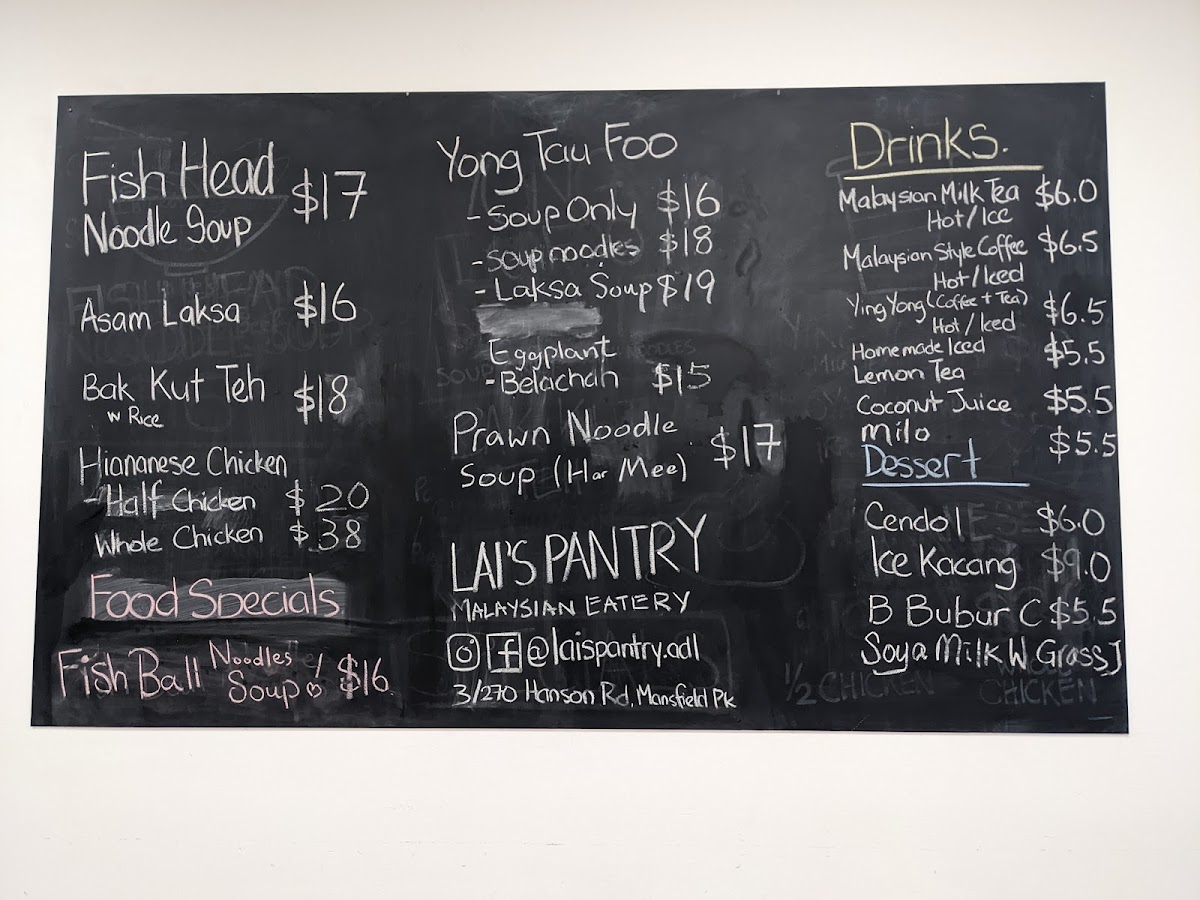 Fish Head
Noodle Soup $17
Asam Laksa $16
Bak Kut Teh $18
w Rice
Hiananese Chicken
- Half Chicken $20
Whole Chicken $38
Food Specials
Fish Ball Noodles / Soup $16
Yong Tau Foo
- Soup Only $16
- Soup noodles $18
- Laksa Soup $19
Eggplant
- Belachan $15
Prawn Noodle
Soup (Har Mee) $17
LAI'S PANTRY
MALAYSIAN EATERY
@laispantry.adl
3/270 Hanson Rd, Mansfield Pk
Drinks.
Malaysian Milk Tea $6.0
Hot/Ice
Malaysian Style Coffee $6.5
Hot/Iced
Ying Yong (Coffee + Tea) $6.5
Hot/Iced
Homemade Iced $5.5
Lemon Tea
Coconut Juice $5.5
Milo $5.5
Dessert
Cendol $6.0
Ice Kacang $9.0
B Bubur C $5.5
Soya Milk W Grass J
1/2 CHICKEN
WHOLE
CHICKEN